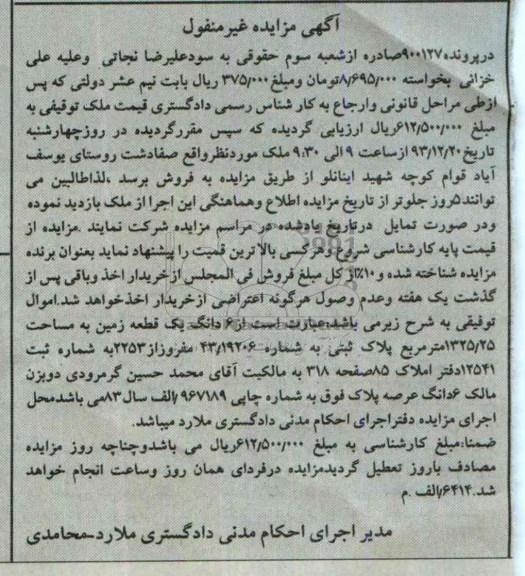 آگهی مزایده غیرمنفول
درپرونده۹۰۰۱۲۷صادره ازشعبه سوم حقوقی به سودعلیرضا نجاتی وعلیه علی
خزائی بخواسته ۸/۶۹۵/۰۰۰تومان ومبلغ۳۷۵/۰۰۰ ریال بابت نیم عشر دولتی که پس
ازطی مراحل قانونی وارجاع به کار شناس رسمی دادگستری قیمت ملک توقیفی به
مبلغ ۶۱۲/۵۰۰/۰۰۰ریال ارزیابی گردیده که سپس مقررگردیده در روزچهارشنبه
تاریخ۹۳/۱۲/۲۰ ازساعت ۹ الی ۹:۳۰ ملک موردنظرواقع صفادشت روستای یوسف
آباد قوام کوچه شهید اینانلو از طریق مزایده به فروش برسد ،لذاطالبین می
توانند۵روز جلوتر از تاریخ مزایده اطلاع وهماهنگی این اجرا از ملک بازدید نموده
ودر صورت تمایل درتاریخ یادشده در مراسم مزایده شرکت نمایند .مزایده از
قیمت پایه کارشناسی شروع وهرکسی بالاترین قمیت را پیشنهاد نماید بعنوان برنده
مزایده شناخته شده و۱۰٪از کل مبلغ فروش فی المجلس ازخریدار اخذ وباقی پس از
گذشت یک هفته وعدم وصول هرگونه اعتراضی ازخریدار اخذخواهد شد.اموال
توقیفی به شرح زیرمی باشد:عبارت است از۶ دانگ یک قطعه زمین به مساحت
۱۳۲۵/۲۵مترمربع پلاک ثبتی به شماره ۴۳/۱۹۲۰۶ مفروزاز۲۲۵۳به شماره ثبت
۱۲۵۴۱دفتر املاک ۸۵صفحه ۳۱۸ به مالکیت آقای محمد حسین گرمرودی دویزن
مالک ۶دانگ عرصه پلاک فوق به شماره چاپی ۹۶۷۱۸۹/الف سال۸۳می باشدمحل
اجرای مزایده دفتراجرای احکام مدنی دادگستری ملارد میباشد.
ضمنا:مبلغ کارشناسی به مبلغ ۶۱۲/۵۰۰/۰۰۰ریال می باشدوچناچه روز مزایده
مصادف باروز تعطیل گردیدمزایده درفردای همان روز وساعت انجام خواهد
شد.۶۴۱۴/الف .م
مدیر اجرای احکام مدنی دادگستری ملارد-محامدی